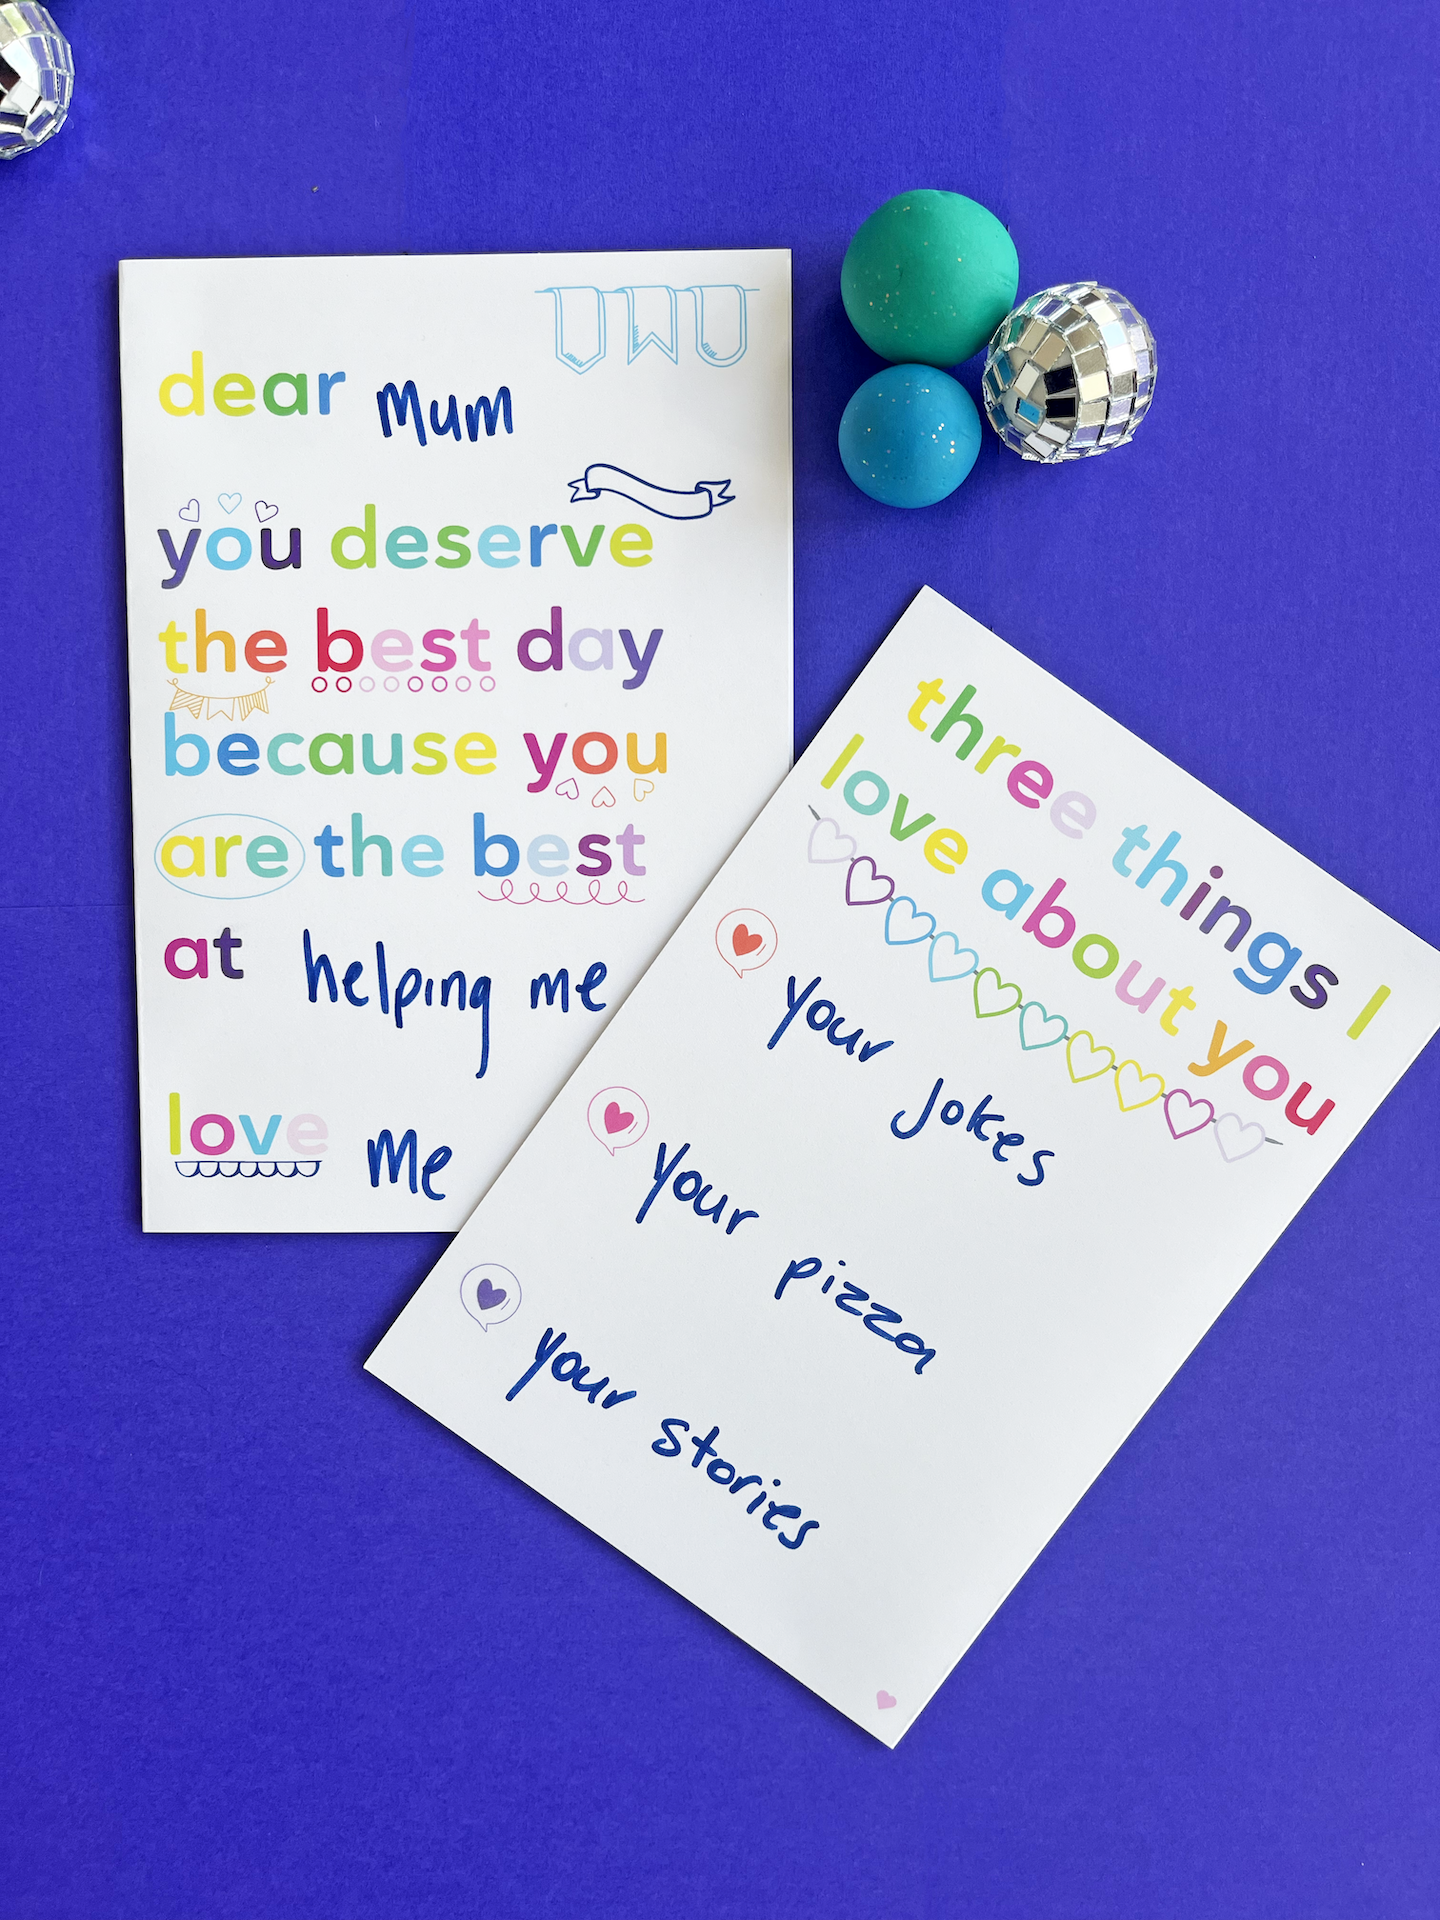 dear Mum
you deserve
the best day
because you
are the best
at helping me
love me
three things I
love about you
your jokes
your pizza
your stories